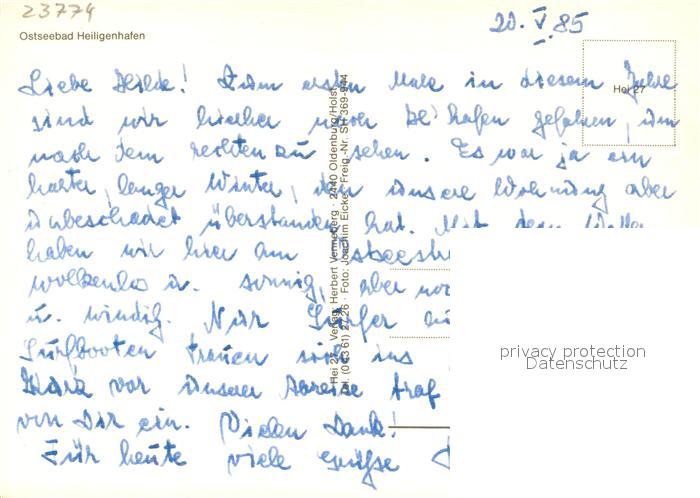 23774
20. V. 85
Ostseebad Heiligenhafen
Liebe Hilde! Zum ersten Male in diesem Jahre
Hei 27
sind wir hierher nach H'hafen gefahren, um
nach dem rechten zu sehen. Es war ja ein
harter, langer Winter, den unsere Wohnung aber
unbeschadet überstanden hat. Mit dem Wetter
haben wir hier am
wolkenlos u. sonnig, aber
u. windig. Nur Surfer
Surfbooten trauen sich ins
Kurz vor unserer Abreise traf
von Dir ein. Vielen Dank!
Für heute viele Grüße
Hei 27 · Verlag: Herbert Venneberg · 2440 Oldenburg/Holst.
Tel. (0 43 61) 24 26 · Foto: Joachim Eicke · Freig.-Nr. SH 369-944
privacy protection
Datenschutz